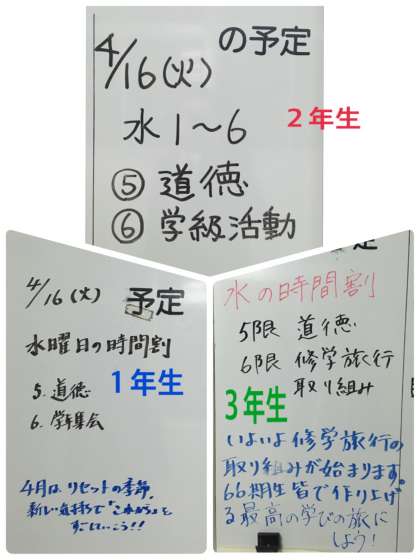 の予定
4/16(火)
水1～6
⑤ 道徳
⑥ 学級活動
2年生
4/16(火)
予定
水曜日の時間割
5. 道徳
6. 学年集会
1年生
4月は、リセットの季節.
新しい気持ちで
すごしていこう!!
予定
水の時間割
5限 道徳
6限 修学旅行
取り組み
3年生
いよいよ修学旅行の
取り組みが始まります。
66期生皆で作り上げ
る最高の学びの旅に
しよう!